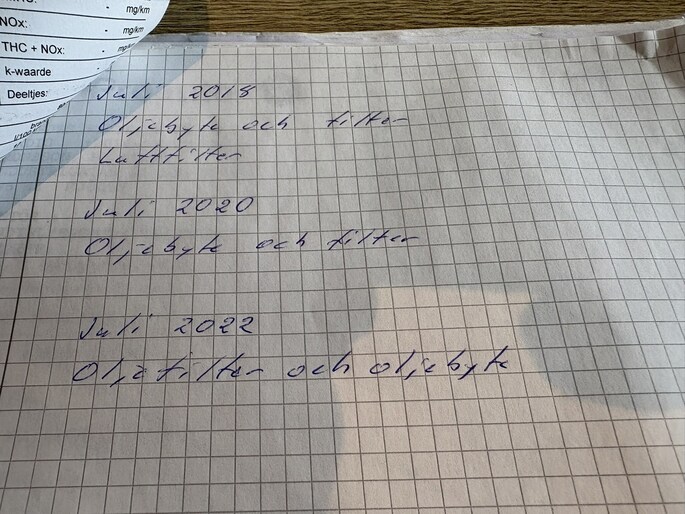 mg/km
NOx: - mg/km
THC + NOx: -
k-waarde
Deeltjes:
Juli 2018
Oljebyte och filter
Luftfilter
Juli 2020
Oljebyte och filter
Juli 2022
Oljefilter och oljebyte